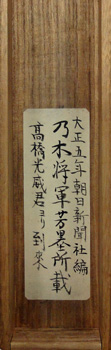 大正五年朝日新聞社編
乃木将軍芳墨所載
高橋光威君ヨリ到来